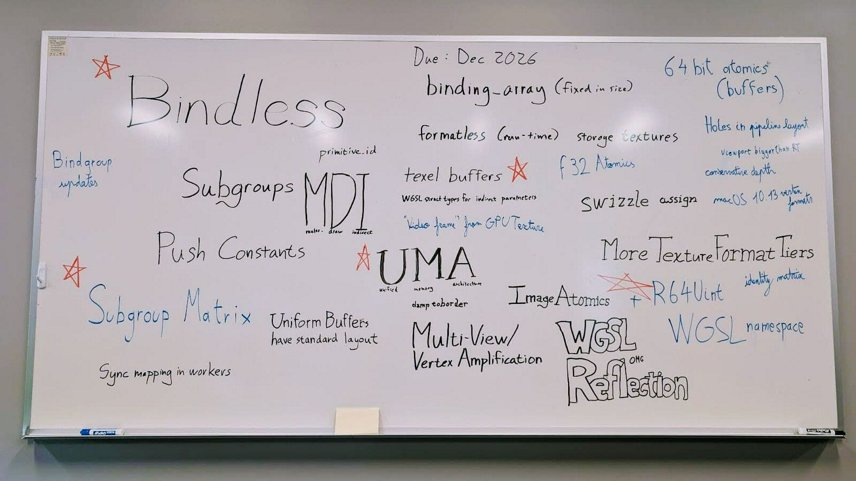 Due: Dec 2026
64 bit atomics
(buffers)
Bindless
binding_array (fixed in size)
formatless (run-time) storage textures
Holes in pipeline layout
viewport bigger than RT
conservative depth
macOS 10.13 vertex
formats
primitive.id
Bindgroup
updates
Subgroups
MDI
multi- draw indirect
texel buffers
f32 Atomics
WGSL struct types for indirect parameters
swizzle assign
"Video frame" from GPUTexture
Push Constants
UMA
unified memory architecture
More Texture Format Tiers
identity matrix
clamp to border
Image Atomics
+ R64Uint
Subgroup Matrix
Uniform Buffers
have standard layout
Multi-View/
Vertex Amplification
WGSL
OMG
Reflection
WGSL namespace
Sync mapping in workers